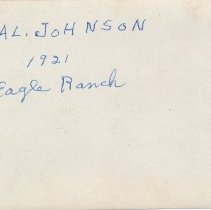 AL. JOHNSON
1921
Eagle Ranch